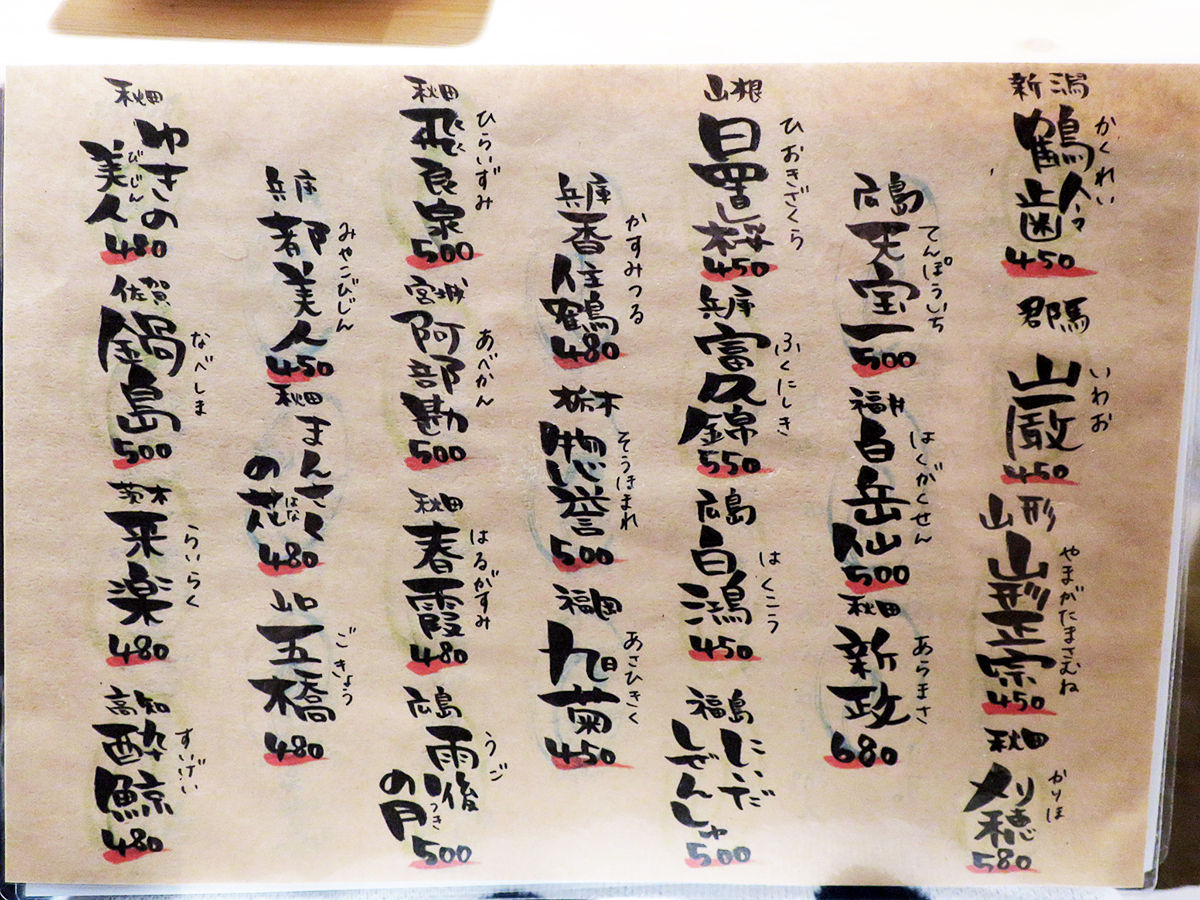 新潟
鶴齢
かくれい
450
群馬
巌
いわお
450
山形
山形正宗
やまがたまさむね
450
秋田
刈穂
かりほ
580
広島
天宝一
てんぽういち
500
福井
白岳仙
はくがくせん
500
秋田
新政
あらまさ
680
山根
日置桜
ひおきざくら
450
兵庫
富久錦
ふくにしき
550
広島
白鴻
はくこう
450
福島
にいだ
しぜんしゅ
500
兵庫
香住鶴
かすみつる
480
栃木
惣誉
そうほまれ
500
福岡
旭菊
あさひきく
450
秋田
飛良泉
ひらいずみ
500
宮城
阿部勘
あべかん
500
秋田
春霞
はるがすみ
480
広島
雨後
うご
の月
つき
500
兵庫
都美人
みやこびじん
450
秋田
まんさく
の花
はな
480
山口
五橋
ごきょう
480
秋田
ゆきの
美人
びじん
480
佐賀
鍋島
なべしま
500
茨木
来楽
らいらく
480
高知
酔鯨
すいげい
480